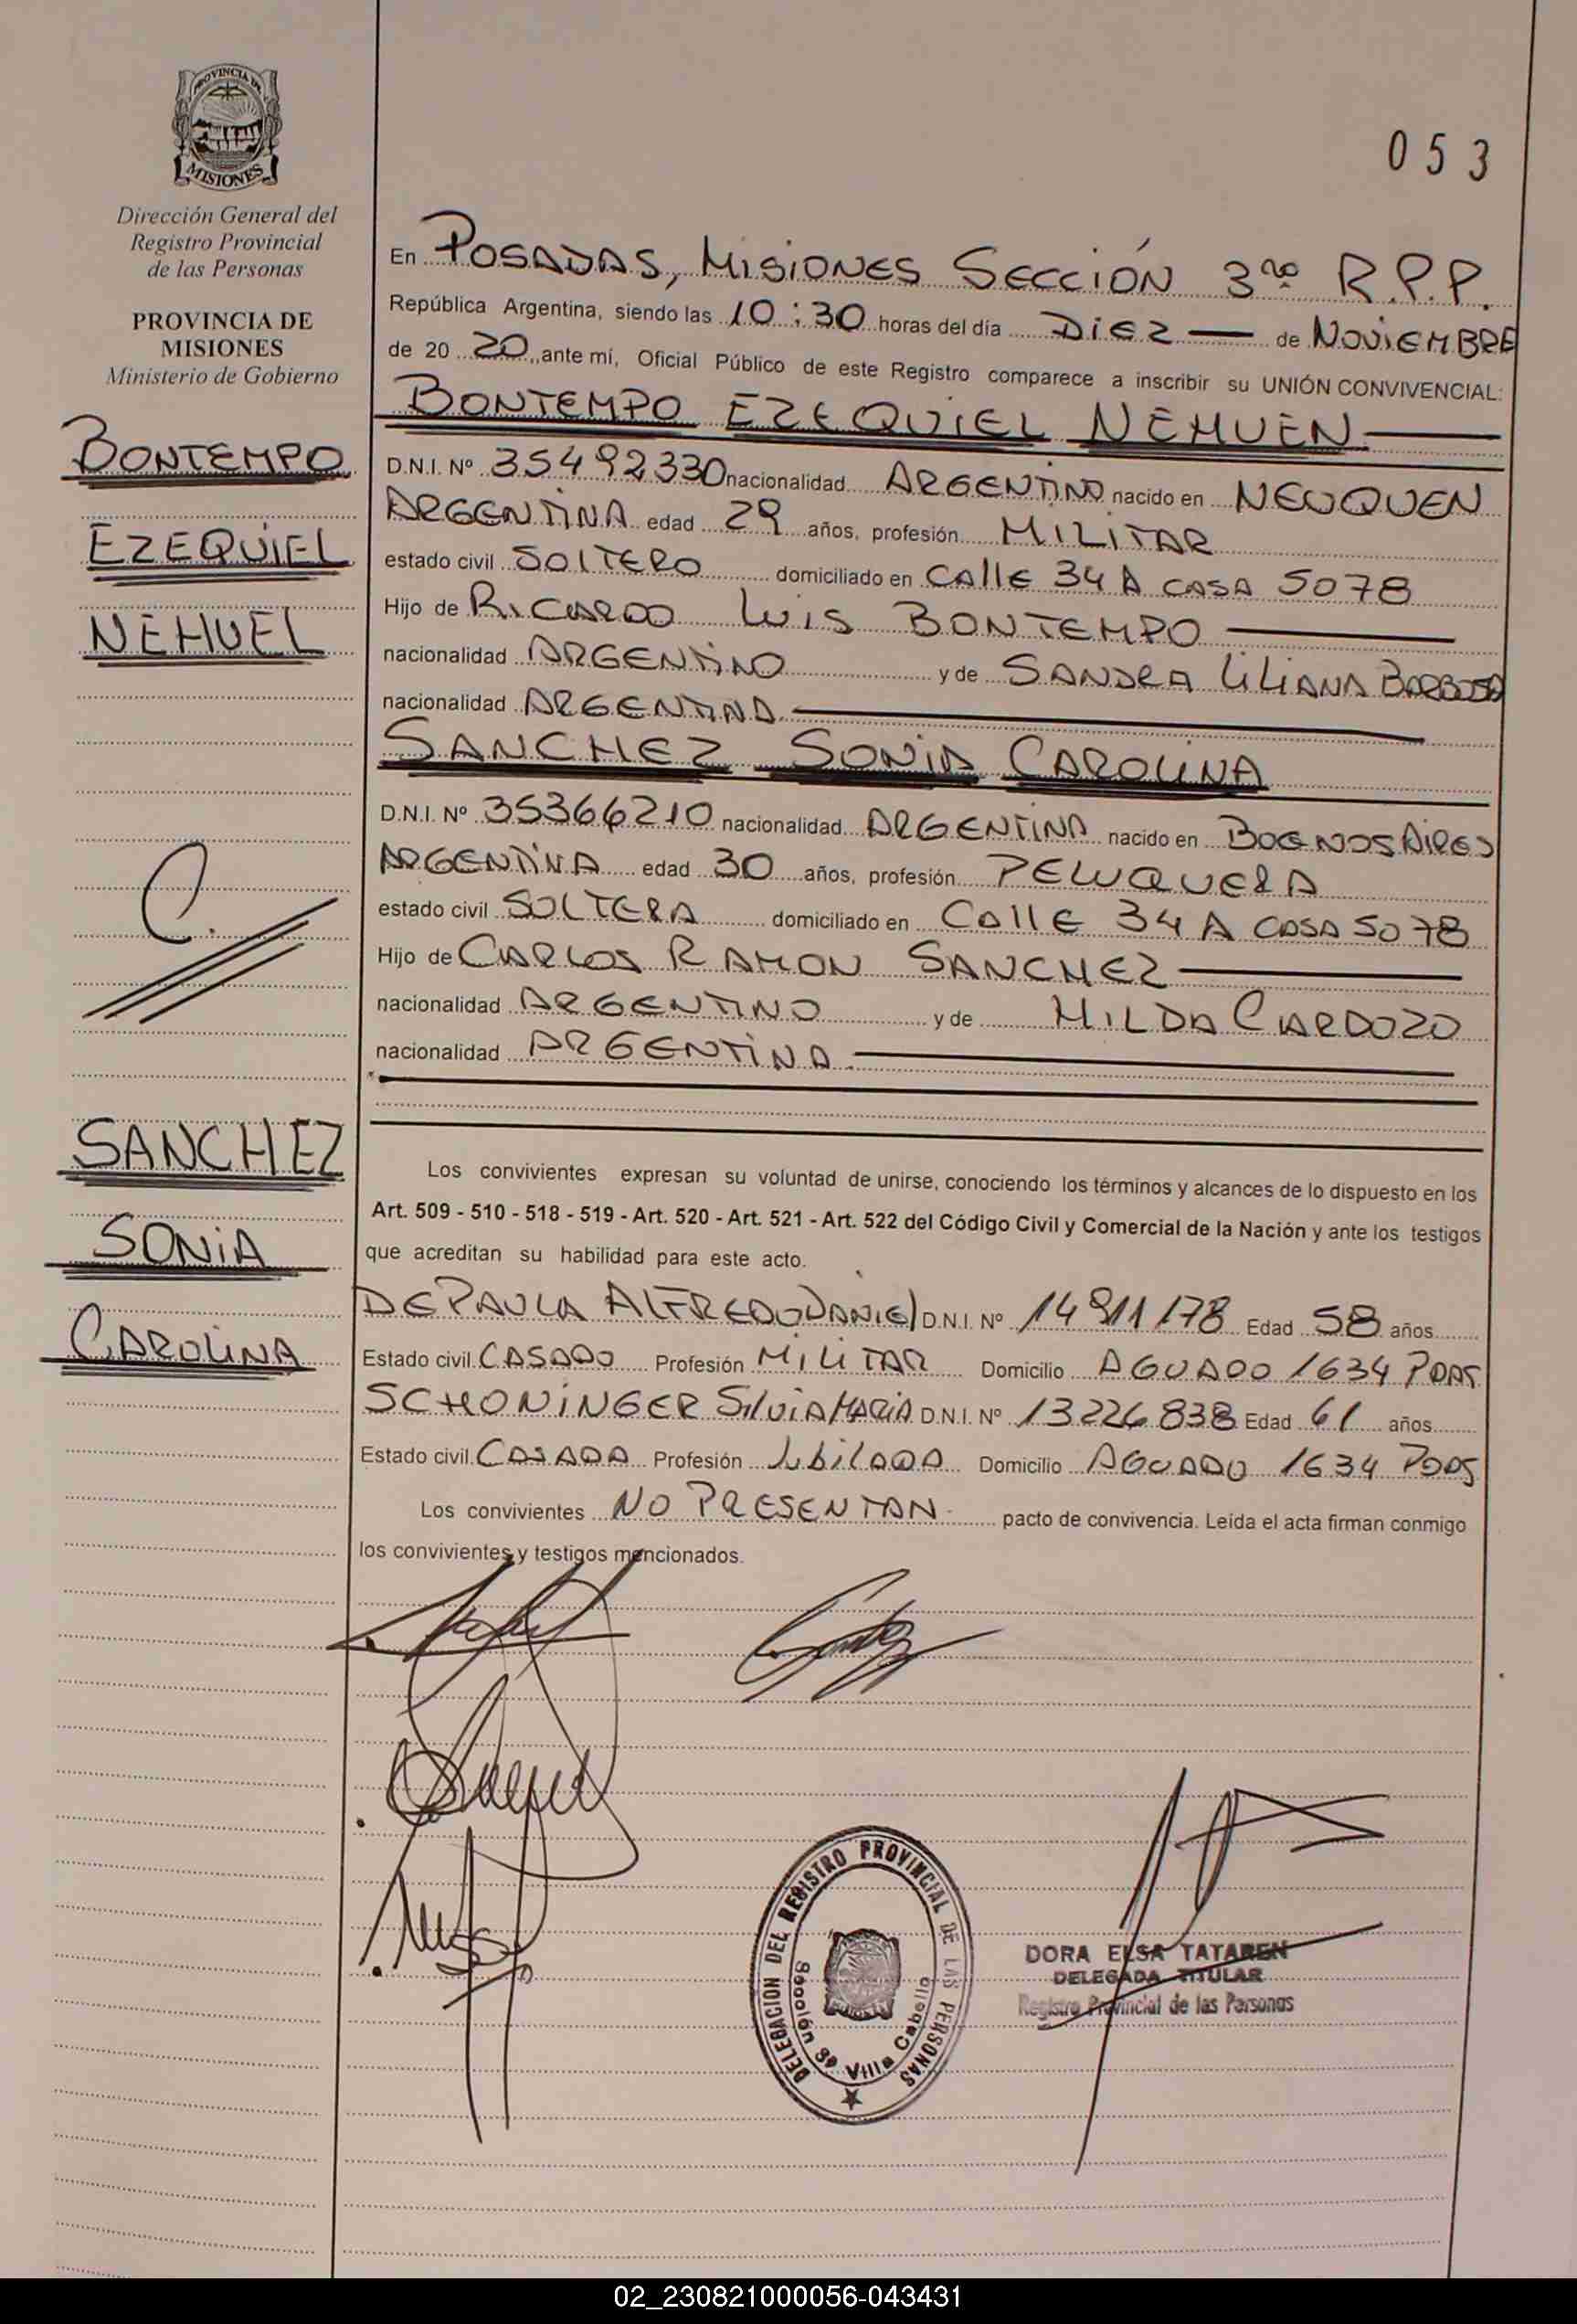 PROVINCIA DE
MISIONES
Dirección General del
Registro Provincial
de las Personas
PROVINCIA DE
MISIONES
Ministerio de Gobierno
BONTEMPO
EZEQUIEL
NEHUEL
C.
SANCHEZ
SONIA
CAROLINA
053
En POSADAS, MISIONES SECCIÓN 3ra R.P.P.
República Argentina, siendo las 10:30 horas del día DIEZ — de NOVIEMBRE
de 20 20, ante mí, Oficial Público de este Registro comparece a inscribir su UNIÓN CONVIVENCIAL:
BONTEMPO EZEQUIEL NEHUEN
D.N.I. Nº 35492330 nacionalidad ARGENTINO nacido en NEUQUEN
ARGENTINA edad 29 años, profesión MILITAR
estado civil SOLTERO domiciliado en CALLE 34 A CASA 5078
Hijo de RICARDO LUIS BONTEMPO
nacionalidad ARGENTINO y de SANDRA LILIANA BARBOSA
nacionalidad ARGENTINA
SANCHEZ SONIA CAROLINA
D.N.I. Nº 35366210 nacionalidad ARGENTINA nacido en BUENOS AIRES
ARGENTINA edad 30 años, profesión PELUQUERA
estado civil SOLTERA domiciliado en CALLE 34 A CASA 5078
Hijo de CARLOS RAMON SANCHEZ
nacionalidad ARGENTINO y de HILDA CARDOZO
nacionalidad ARGENTINA.
Los convivientes expresan su voluntad de unirse, conociendo los términos y alcances de lo dispuesto en los
Art. 509 - 510 - 518 - 519 - Art. 520 - Art. 521 - Art. 522 del Código Civil y Comercial de la Nación y ante los testigos
que acreditan su habilidad para este acto.
DEPAULA ALFREDO DANIEL D.N.I. Nº 14911178 Edad 58 años
Estado civil CASADO Profesión MILITAR Domicilio AGUADO 1634 PDAS
SCHONINGER SILVIA MARIA D.N.I. Nº 13226838 Edad 61 años
Estado civil CASADA Profesión JUBILADA Domicilio AGUADO 1634 PDAS
Los convivientes NO PRESENTAN pacto de convivencia. Leída el acta firman conmigo
los convivientes y testigos mencionados.
DELEGACION DEL REGISTRO PROVINCIAL DE LAS PERSONAS
Sección 3º Villa Cabello
DORA ELSA TATAREN
DELEGADA TITULAR
Registro Provincial de las Personas
02_230821000056-043431